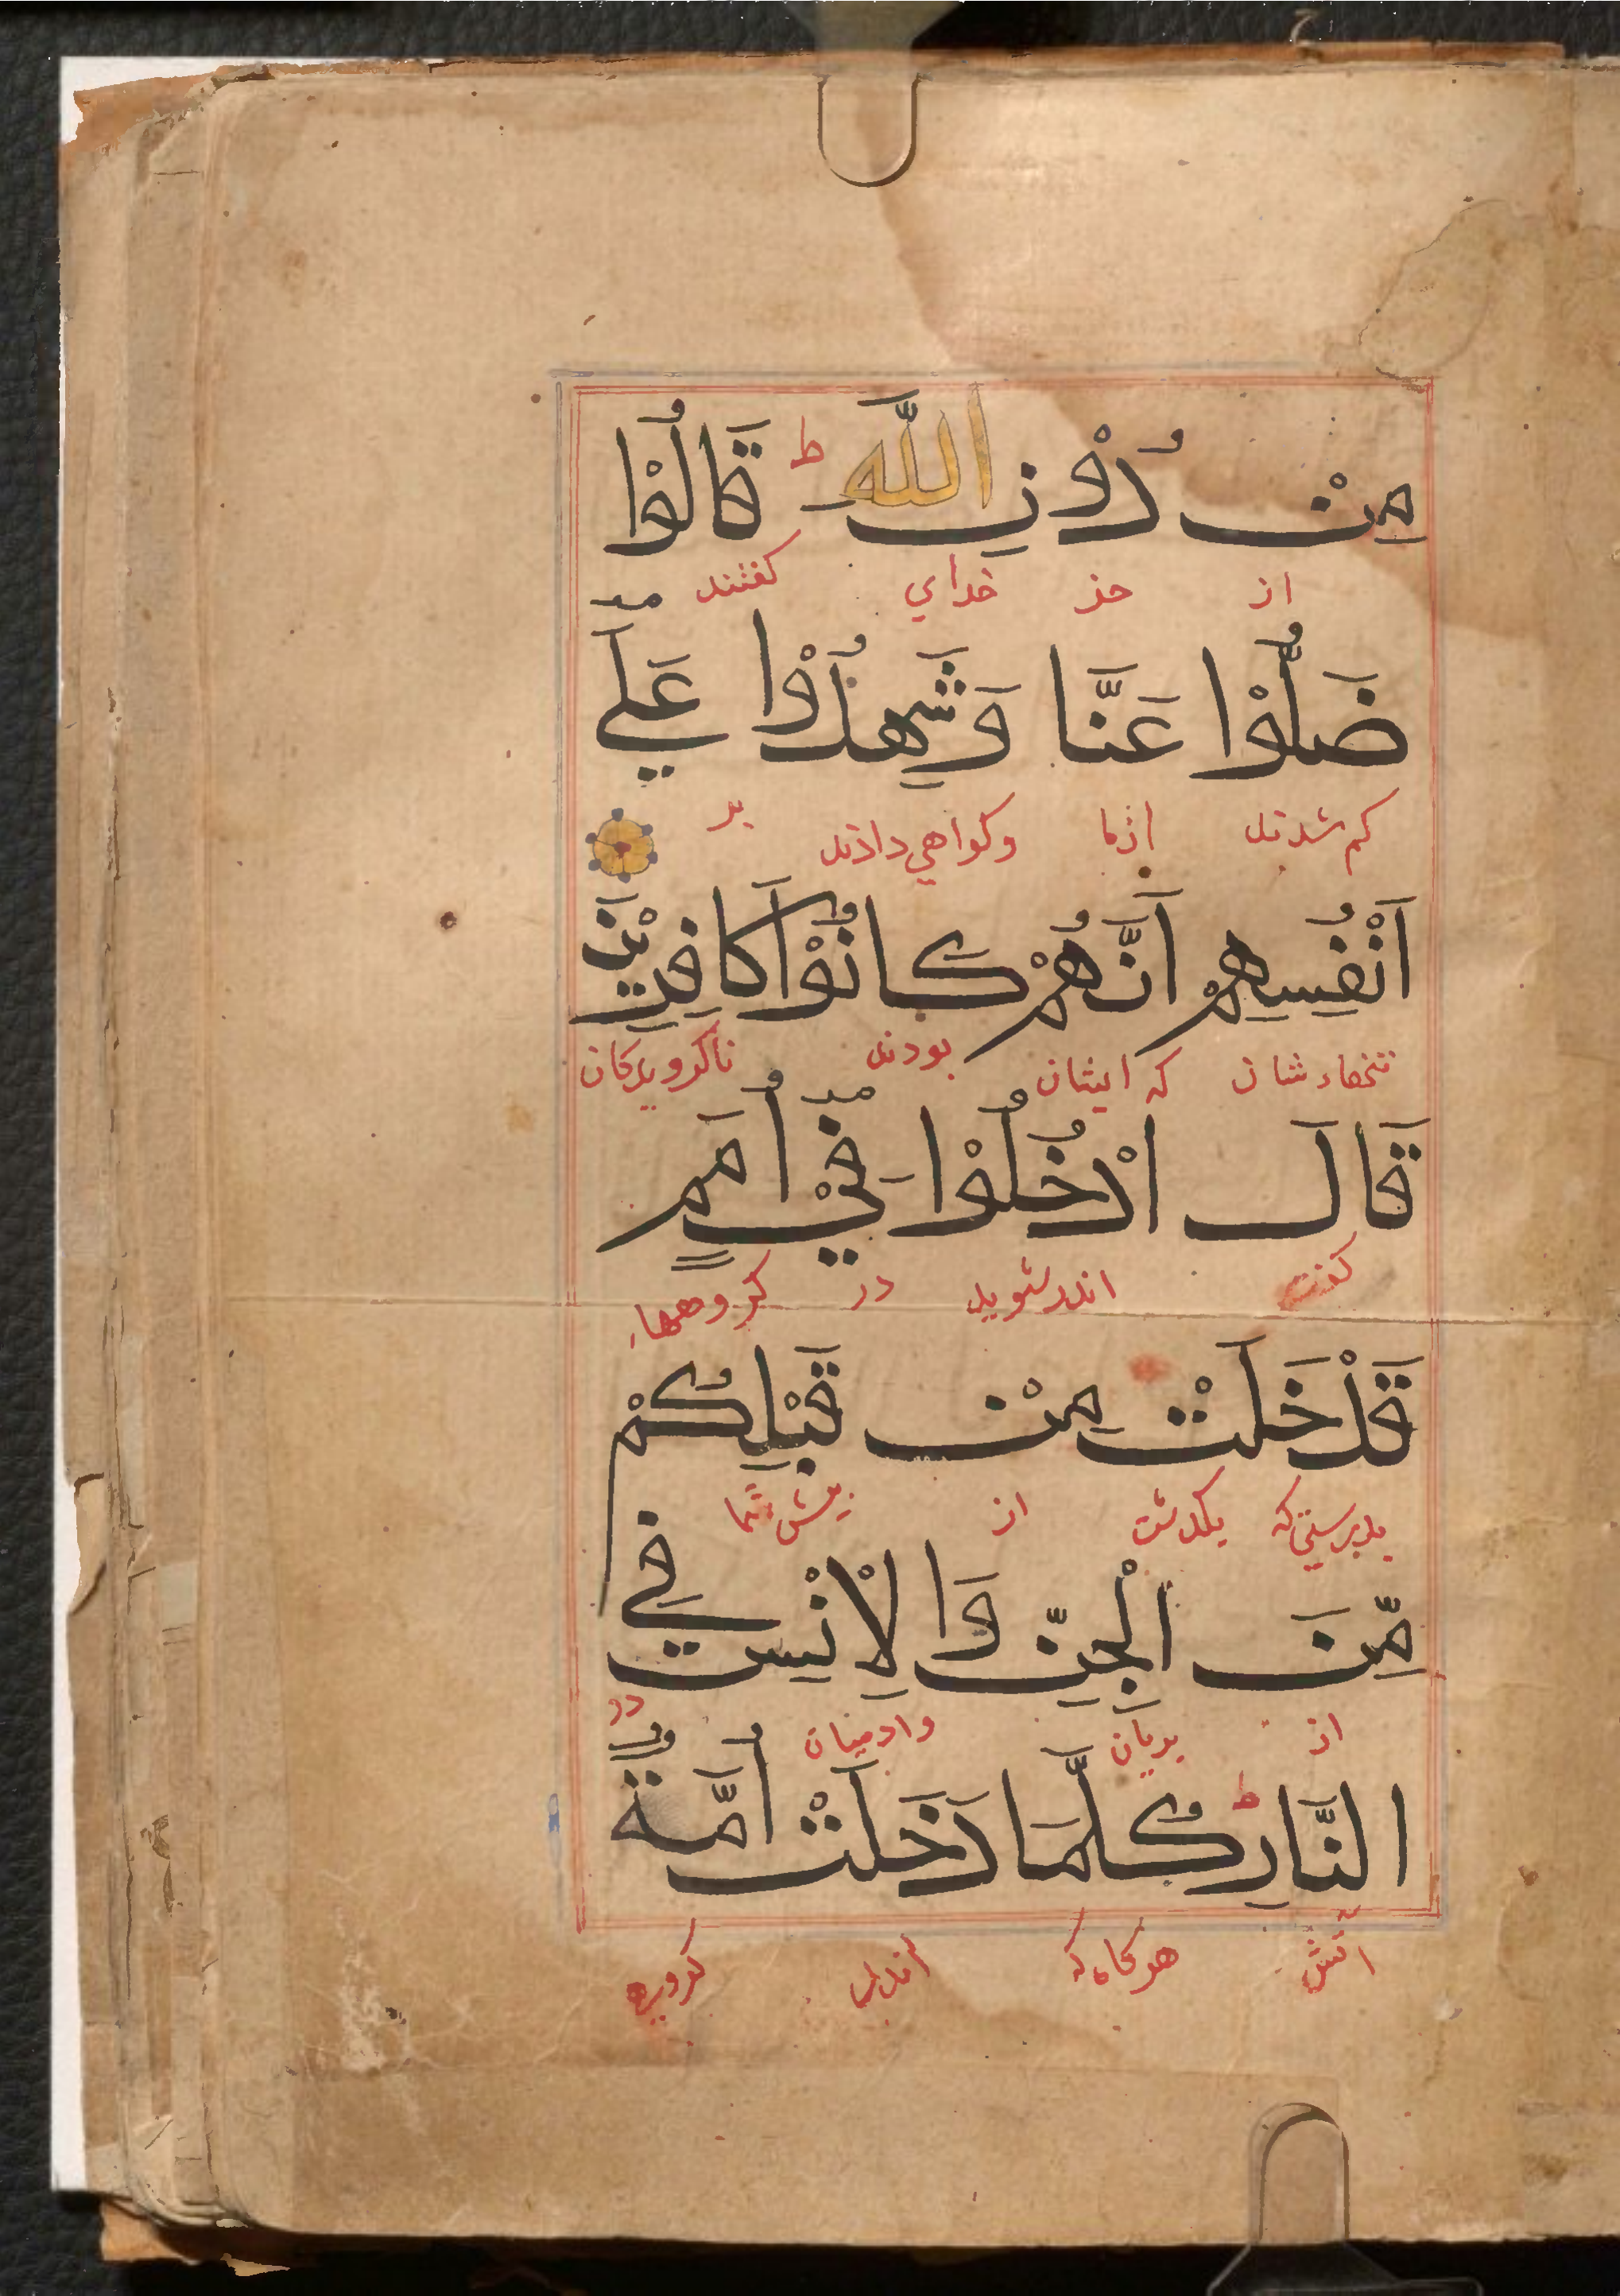 مِنْ دُوْنِ اللّٰهِ ط قَالُوْا
از جز خداي كفتند
ضَلُّوْا عَنَّا وَشَهِدُوْا عَلَي
كم شدند ازما وكواهي دادند بر
اَنْفُسِهِمْ اَنَّهُمْ كَانُوْا كَافِرِيْنَ
تنهاء شان كه ايشان بودند ناكرويدكان
قَالَ ادْخُلُوْا فِيْ اُمَمٍ
كفت اندرشويد در كروهها
قَدْ خَلَتْ مِنْ قَبْلِكُمْ
بدرستي كه بكذشت از پيش شما
مِّنَ الْجِنِّ وَالْاِنْسِ فِي
از پريان وادميان در
النَّارِ ط كُلَّمَا دَخَلَتْ اُمَّةٌ
اتش هركاه كه كروهي